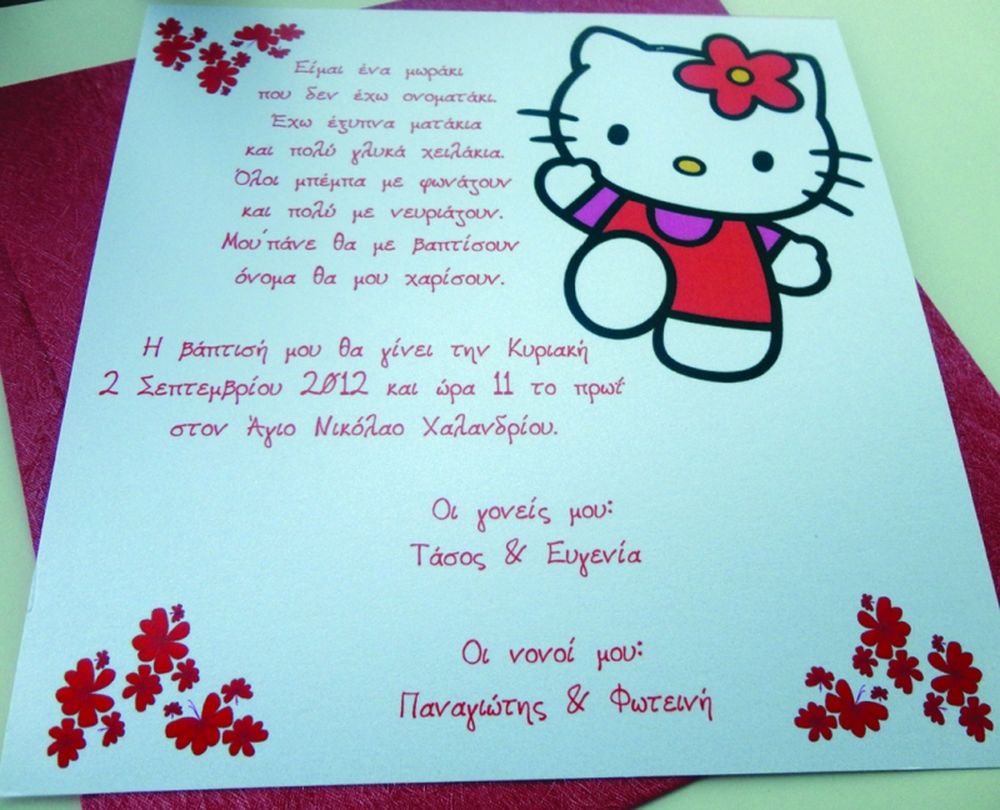 Είμαι ένα μωράκι
που δεν έχω ονοματάκι.
Έχω έξυπνα ματάκια
και πολύ γλυκά χειλάκια.
Όλοι μπέμπα με φωνάζουν
και πολύ με νευριάζουν.
Μου'πάνε θα με βαπτίσουν
όνομα θα μου χαρίσουν.
Η βάπτισή μου θα γίνει την Κυριακή
2 Σεπτεμβρίου 2012 και ώρα 11 το πρωΐ
στον Άγιο Νικόλαο Χαλανδρίου.
Οι γονείς μου:
Τάσος & Ευγενία
Οι νονοί μου:
Παναγιώτης & Φωτεινή